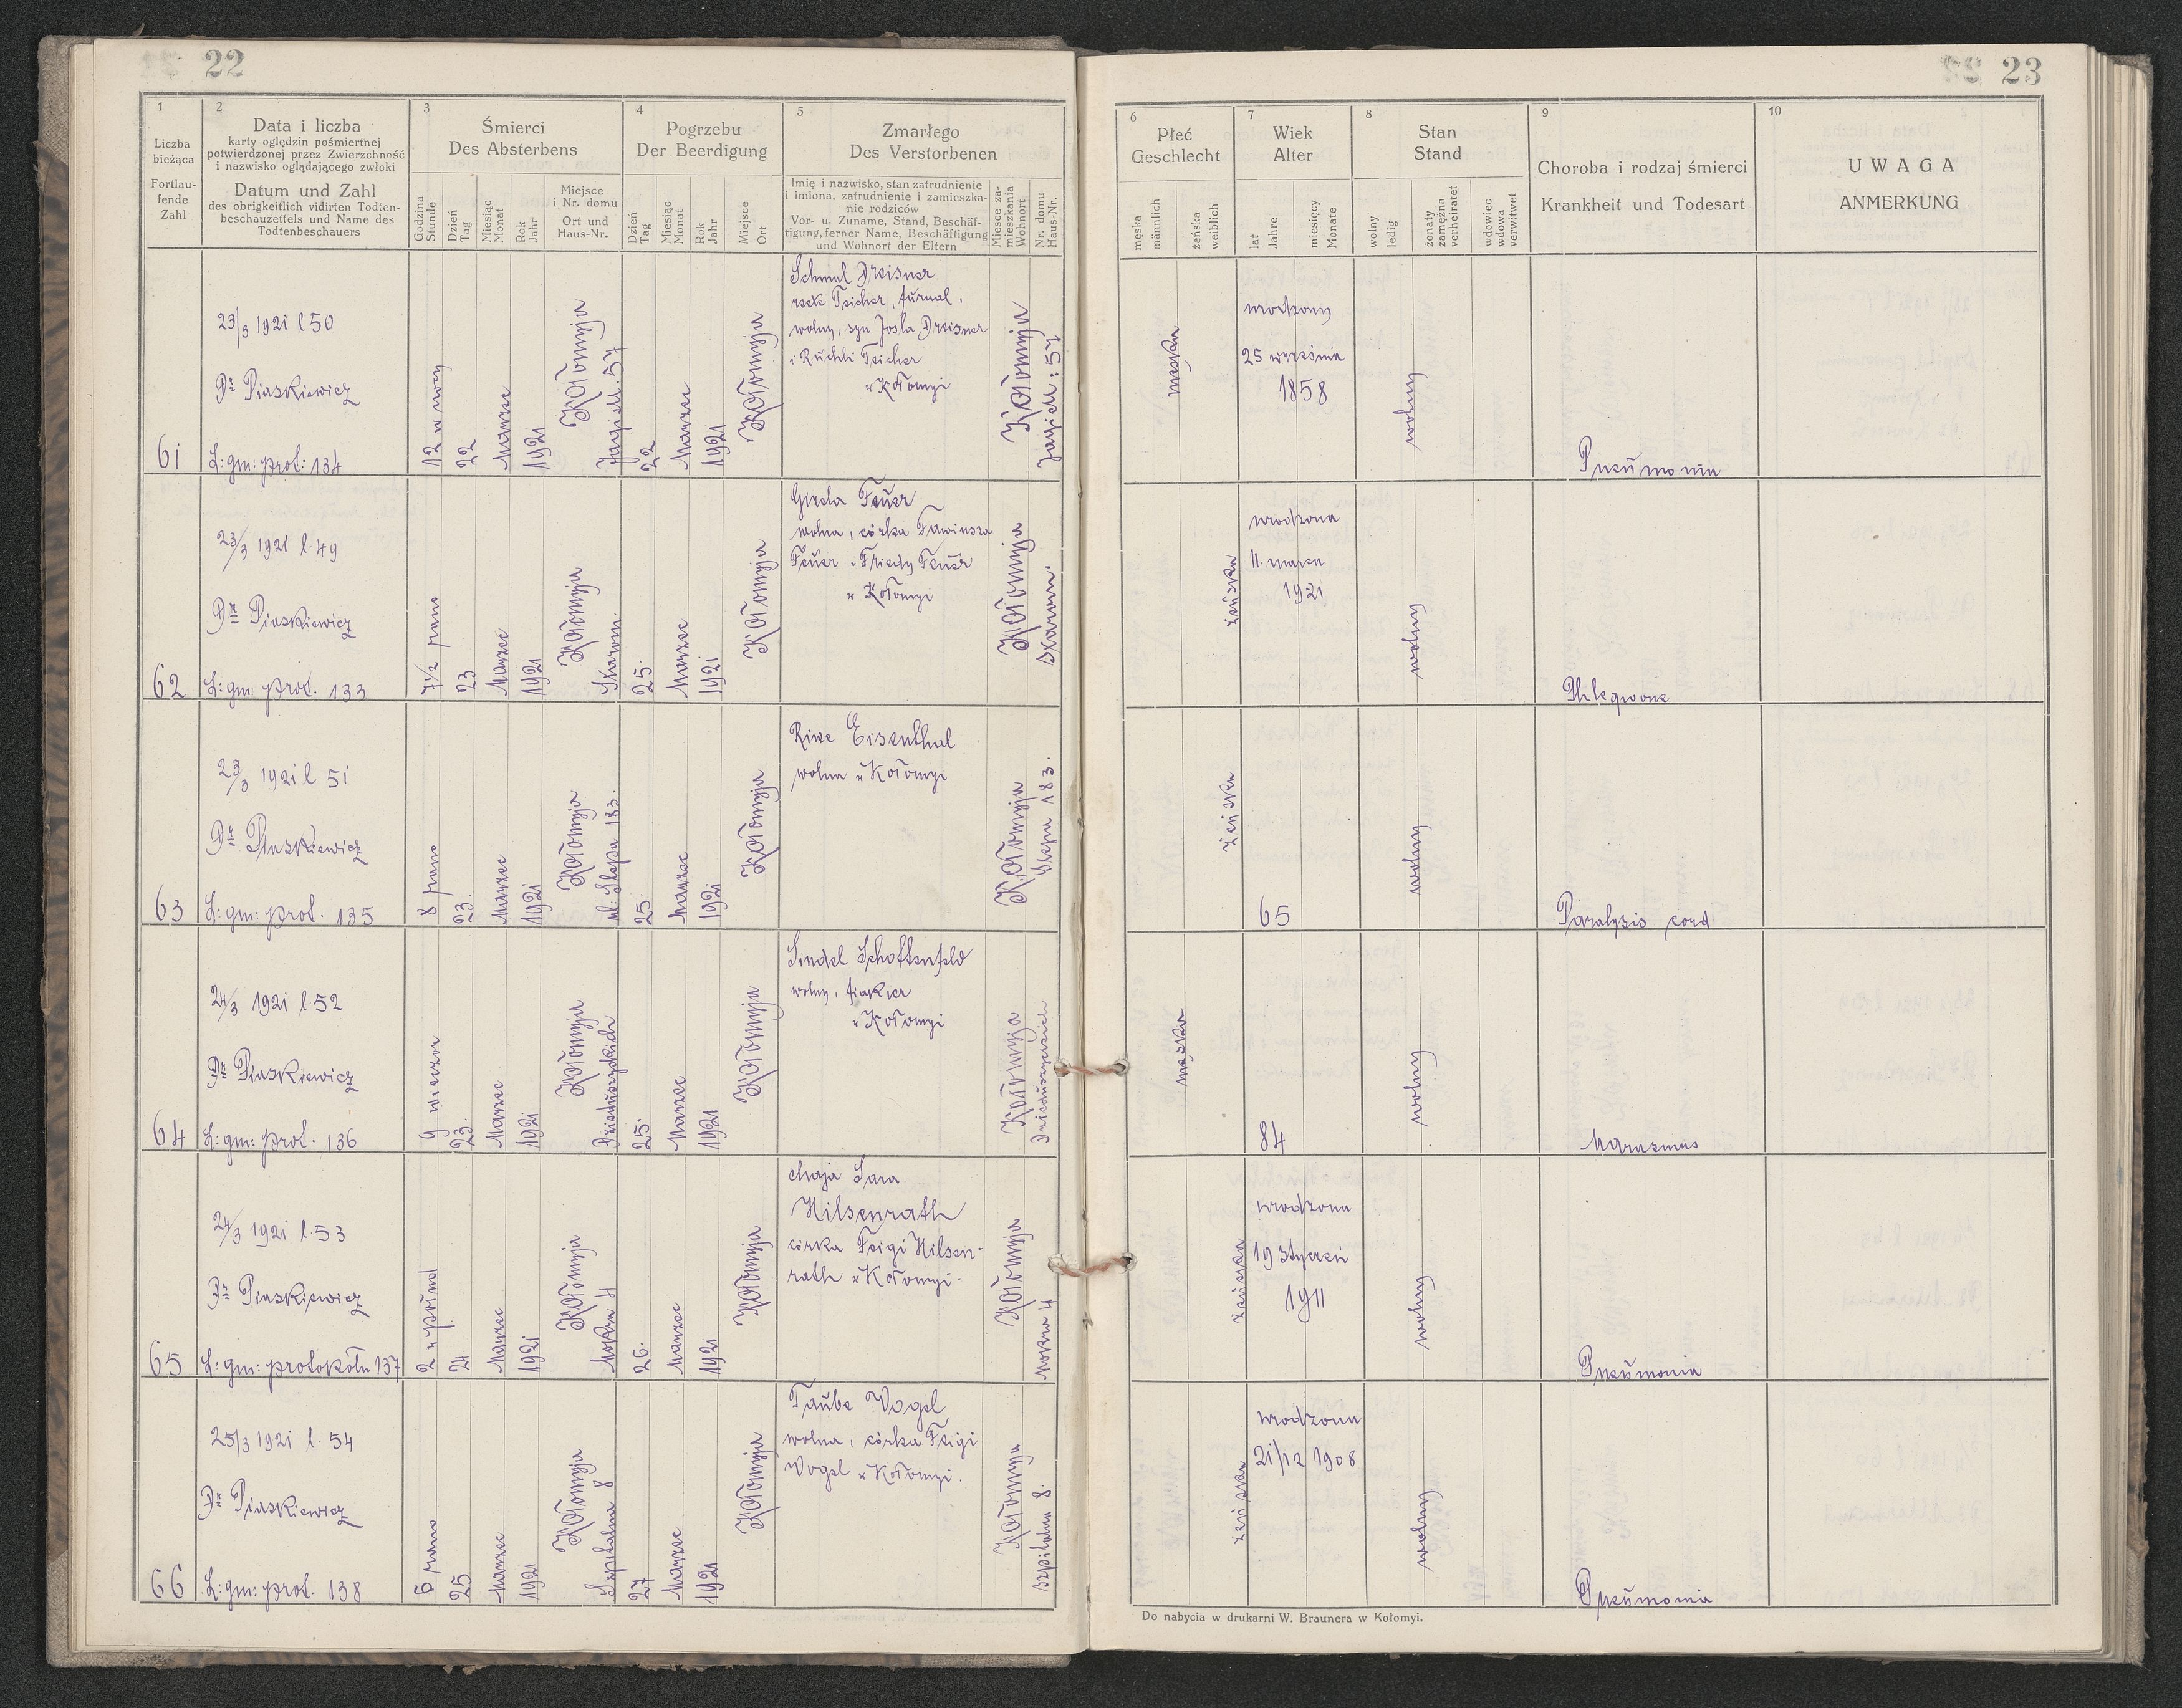 22
1
Liczba
bieżąca
Fortlau-
fende
Zahl
2
Data i liczba
karty oględzin pośmiertnej
potwierdzonej przez Zwierzchność
i nazwisko oglądającego zwłoki
Datum und Zahl
des obrigkeitlich vidirten Todten-
beschauzettels und Name des
Todtenbeschauers
3
Śmierci
Des Absterbens
Godzina
Stunde
Dzień
Tag
Miesiąc
Monat
Rok
Jahr
Miejsce
i Nr. domu
Ort und
Haus-Nr.
4
Pogrzebu
Der Beerdigung
Dzień
Tag
Miesiąc
Monat
Rok
Jahr
Miejsce
Ort
5
Zmarłego
Des Verstorbenen
Imię i nazwisko, stan zatrudnienie
i imiona, zatrudnienie i zamieszka-
nie rodziców
Vor- u. Zuname, Stand, Beschäf-
tigung, ferner Name, Beschäftigung
und Wohnort der Eltern
Miesce za-
mieszkania
Wohnort
Nr. domu
Haus-Nr.
61
23/3 1921 l 50
Dr Piaskiewicz
L: gm: prot: 134
12 w nocy
22
Marzec
1921
Kołomyja
Jagiell. 57
22
Marzec
1921
Kołomyja
Schmul Dreisner
recte Teicher,
wolny, syn Josla Dreisner
i Ruchli Teicher
w Kołomyi
Kołomyja
Jagiell: 57
62
23/3 1921 l. 49
Dr Piaskiewicz
L: gm: prot. 133
7 1/2 rano
23
Marzec
1921
Kołomyja
25.
Marzec
1921
Kołomyja
Gizela Feuer
wolna, córka
Feuer i Friedy Feuer
w Kołomyi
Kołomyja
63
23/3 1921 l 51
Dr Piaskiewicz
L: gm: prot. 135
8 rano
23.
Marzec
1921
Kołomyja
ul: Ślepa 183.
25.
Marzec
1921
Kołomyja
Rive Eisenthal
wolna w Kołomyi
Kołomyja
Ślepa 183.
64
24/3 1921 l. 52
Dr Piaskiewicz
L: gm: prot. 136
9 wieczor
23.
Marzec
1921
Kołomyja
Dzieduszyckich
25.
Marzec
1921
Kołomyja
Sindel Schottenfeld
wolny, fiakier
w Kołomyi
Kołomyja
Dzieduszyckich
65
24/3 1921 l. 53
Dr Piaskiewicz
L: gm: protokołu 137
2 w połud
24
Marzec
1921
Kołomyja
Mokra 4
26.
Marzec
1921
Kołomyja
Chaja Sara
Hilsenrath
córka Feigi Hilsen-
rath w Kołomyi.
Kołomyja
Mokra 4
66
25/3 1921 l. 54
Dr Piaskiewicz
L: gm: prot. 138
5 rano
25
Marzec
1921
Kołomyja
Szpitalna 8
27
Marzec
1921
Kołomyja
Taube Vogel
wolna, córka Feigi
Vogel w Kołomyi.
Kołomyja
Szpitalna 8.
23
6
Płeć
Geschlecht
męska
männlich
żeńska
weiblich
7
Wiek
Alter
lat
Jahre
miesięcy
Monate
8
Stan
Stand
wolny
ledig
żonaty
zamężna
verheiratet
wdowiec
wdowa
verwitwet
9
Choroba i rodzaj śmierci
Krankheit und Todesart
10
UWAGA
ANMERKUNG
męska
urodzony
25 września
1858
wolny
Pneumonia
żeńska
urodzona
11. marca
1921
wolny
Phlegmone
żeńska
65
wolny
Paralysis cord
męska
84
wolny
Marasmus
żeńska
urodzona
19 styczeń
1911
wolny
Pneumonia
żeńska
urodzona
21/12 1908
wolny
Pneumonia
Do nabycia w drukarni W. Braunera w Kołomyi.